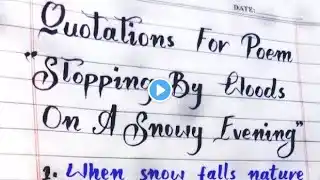 DATE:
Quotations For Poem
"Stopping By Woods
On A Snowy Evening"
1. When snow falls nature